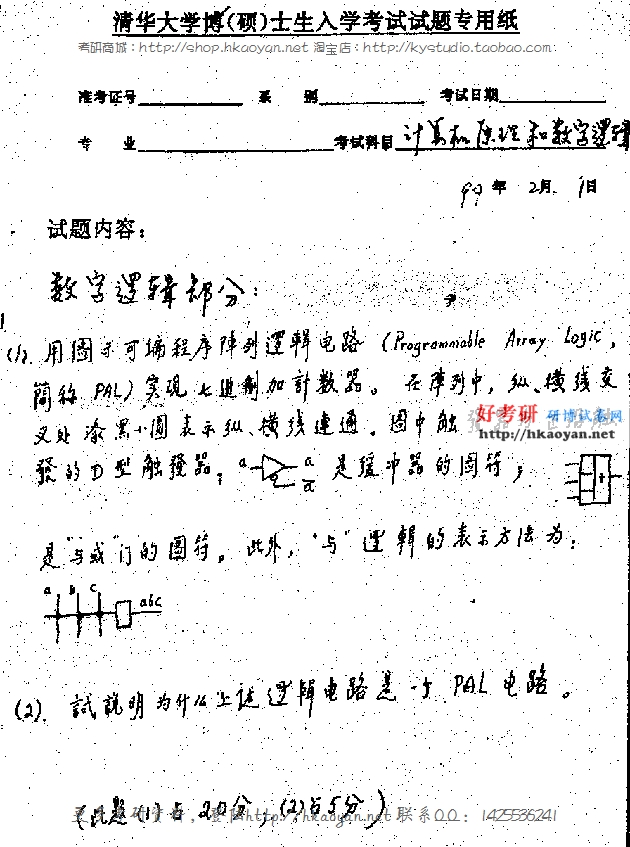 清华大学博(硕)士生入学考试试题专用纸
考研商城:http://shop.hkaoyan.net 淘宝店:http://kystudio.taobao.com
准考证号 系别 考试日期
专业 考试科目 计算机原理和数字逻辑
97年 2月 1日
试题内容:
数字逻辑部分:
(1). 用图示可编程序阵列逻辑电路 (Programmable Array Logic,
简称 PAL) 实现七进制加计数器。在阵列中,纵、横线交
叉处涂黑小圆表示纵、横线连通。图中触
好考研 研博试卷网
http://hkaoyan.net
发的D型触发器; a a a 是缓冲器的图符;
+
是"与或"门的图符。此外,"与"逻辑的表示方法为:
a b c abc
(2). 试说明为什么上述逻辑电路是一与 PAL 电路。
(此题(1)占20分,(2)占5分)
http://hkaoyan.net 联系QQ:1425536241